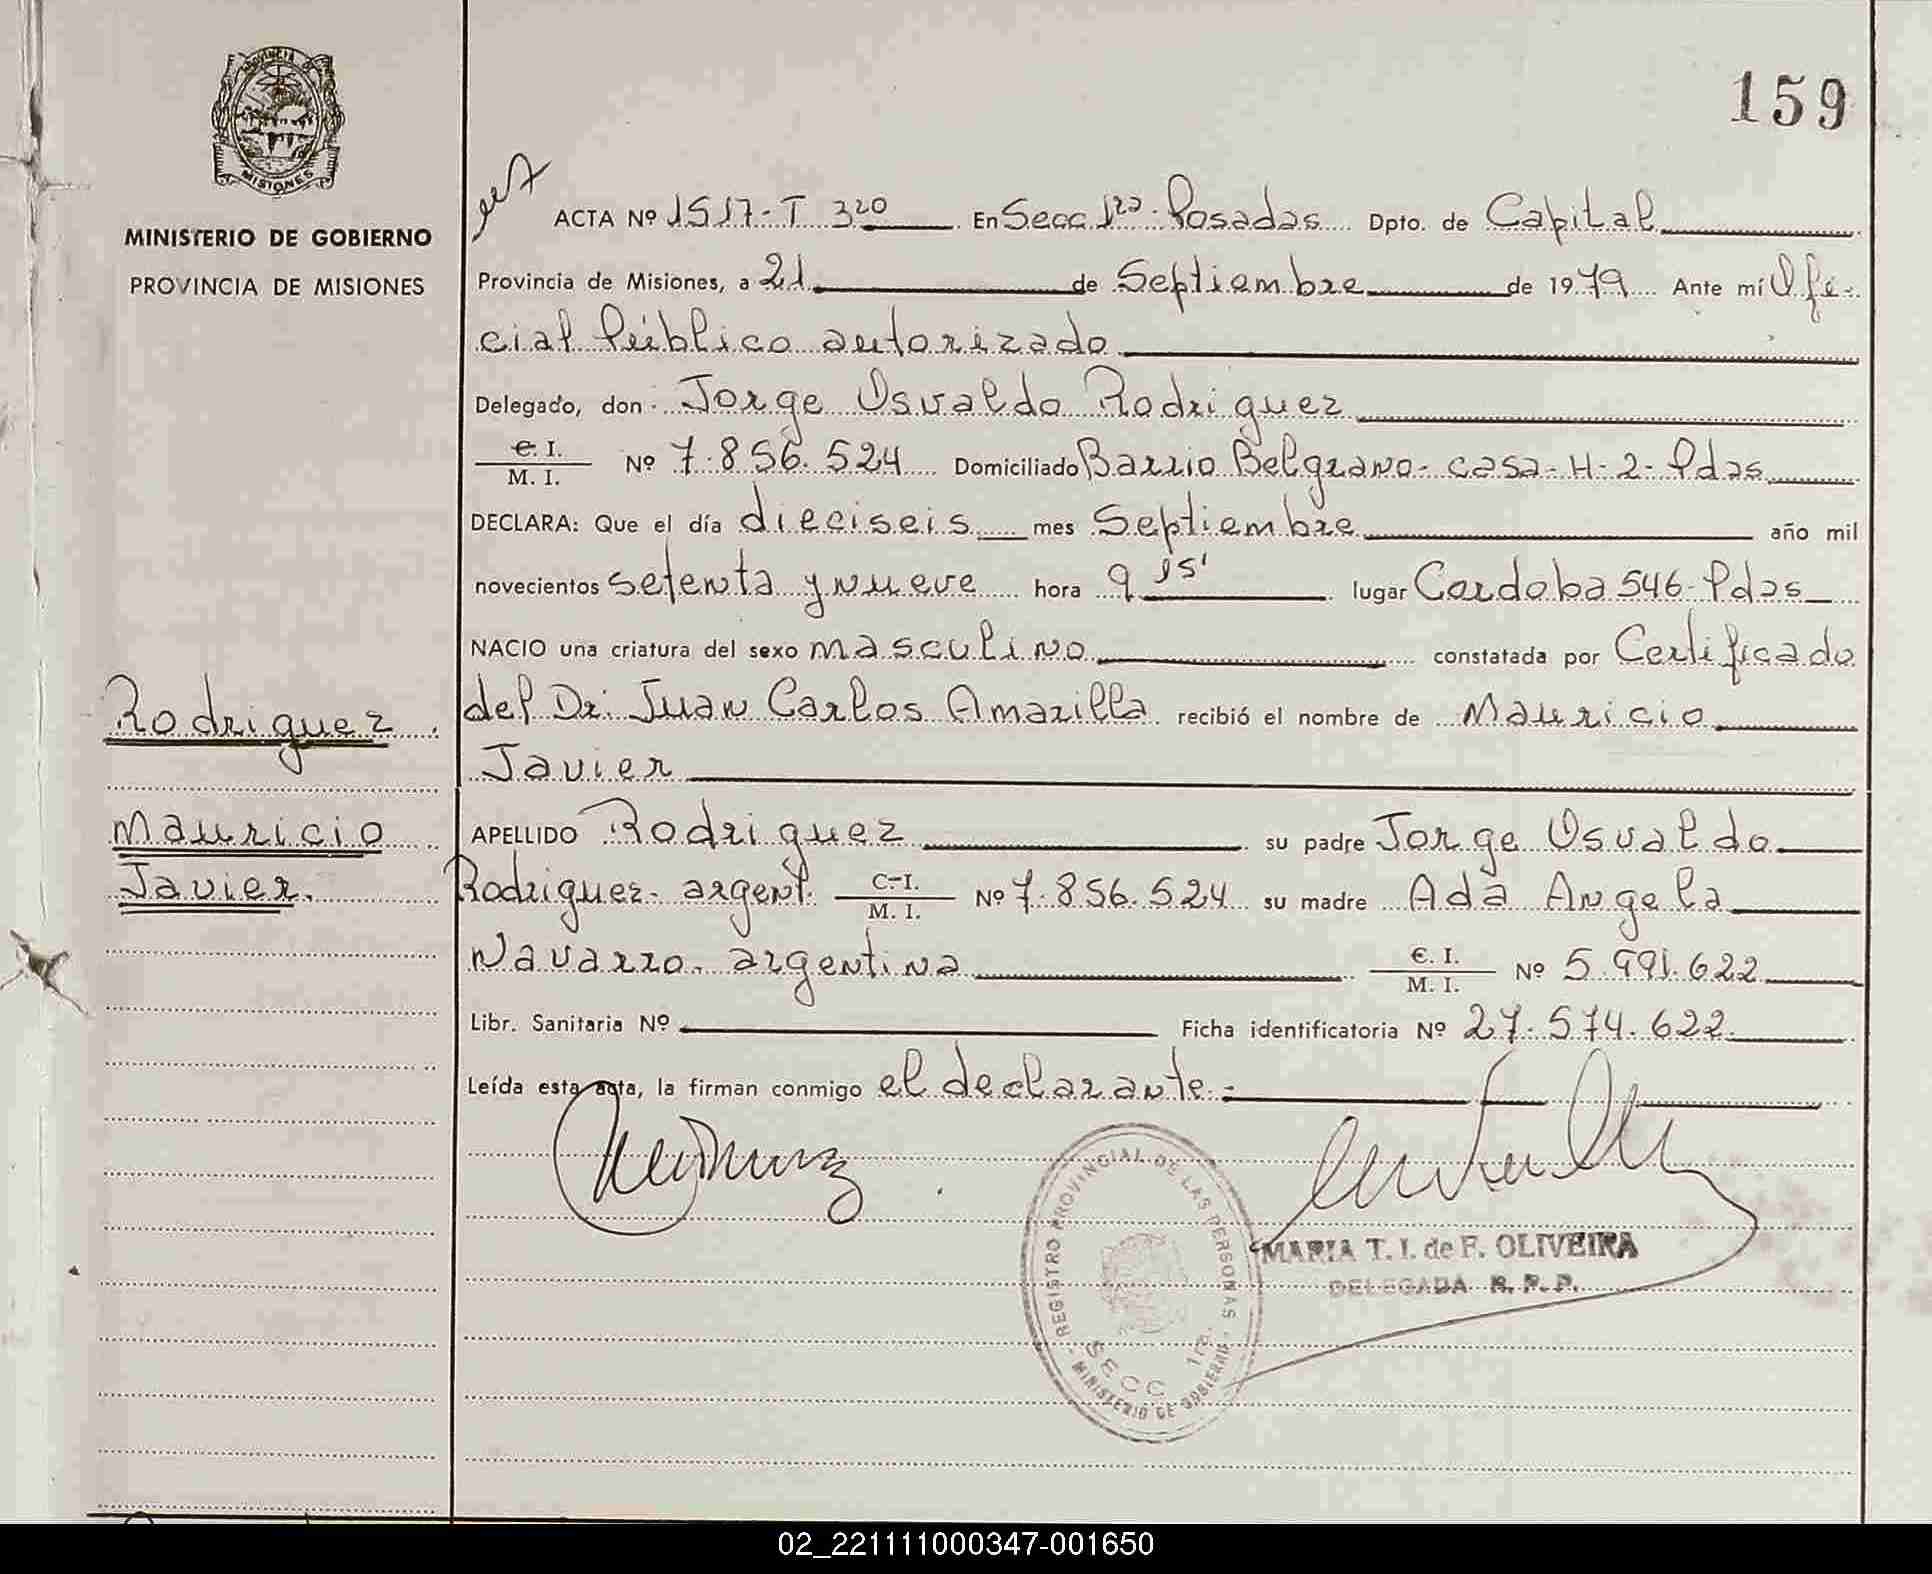 159
PROVINCIA DE
MISIONES
MINISTERIO DE GOBIERNO
PROVINCIA DE MISIONES
ACTA Nº 1517-T 320 En Secc 1ra Posadas Dpto. de Capital
Provincia de Misiones, a 21 de Septiembre de 1979 Ante mí Ofi-
cial Público autorizado
Delegado, don Jorge Osvaldo Rodriguez
C. I.
M. I. Nº 7.856.524 Domiciliado Barrio Belgrano - casa - H - 2 - Pdas
DECLARA: Que el día dieciseis mes Septiembre año mil
novecientos setenta y nueve hora 9 15' lugar Cordoba 546 - Pdas
NACIO una criatura del sexo masculino constatada por Certificado
del Dr. Juan Carlos Amarilla recibió el nombre de Mauricio
Javier
Rodriguez
Mauricio
Javier.
APELLIDO Rodriguez su padre Jorge Osvaldo
Rodriguez - argent. C. I.
M. I. Nº 7.856.524 su madre Ada Angela
Navarro. argentina C. I.
M. I. Nº 5.991.622
Libr. Sanitaria Nº Ficha identificatoria Nº 27.574.622
Leída esta acta, la firman conmigo el declarante.-
REGISTRO PROVINCIAL DE LAS PERSONAS
SECC 1ra.
- MINISTERIO DE GOBIERNO -
MARIA T. I. de F. OLIVEIRA
DELEGADA R. P. P.
02_221111000347-001650